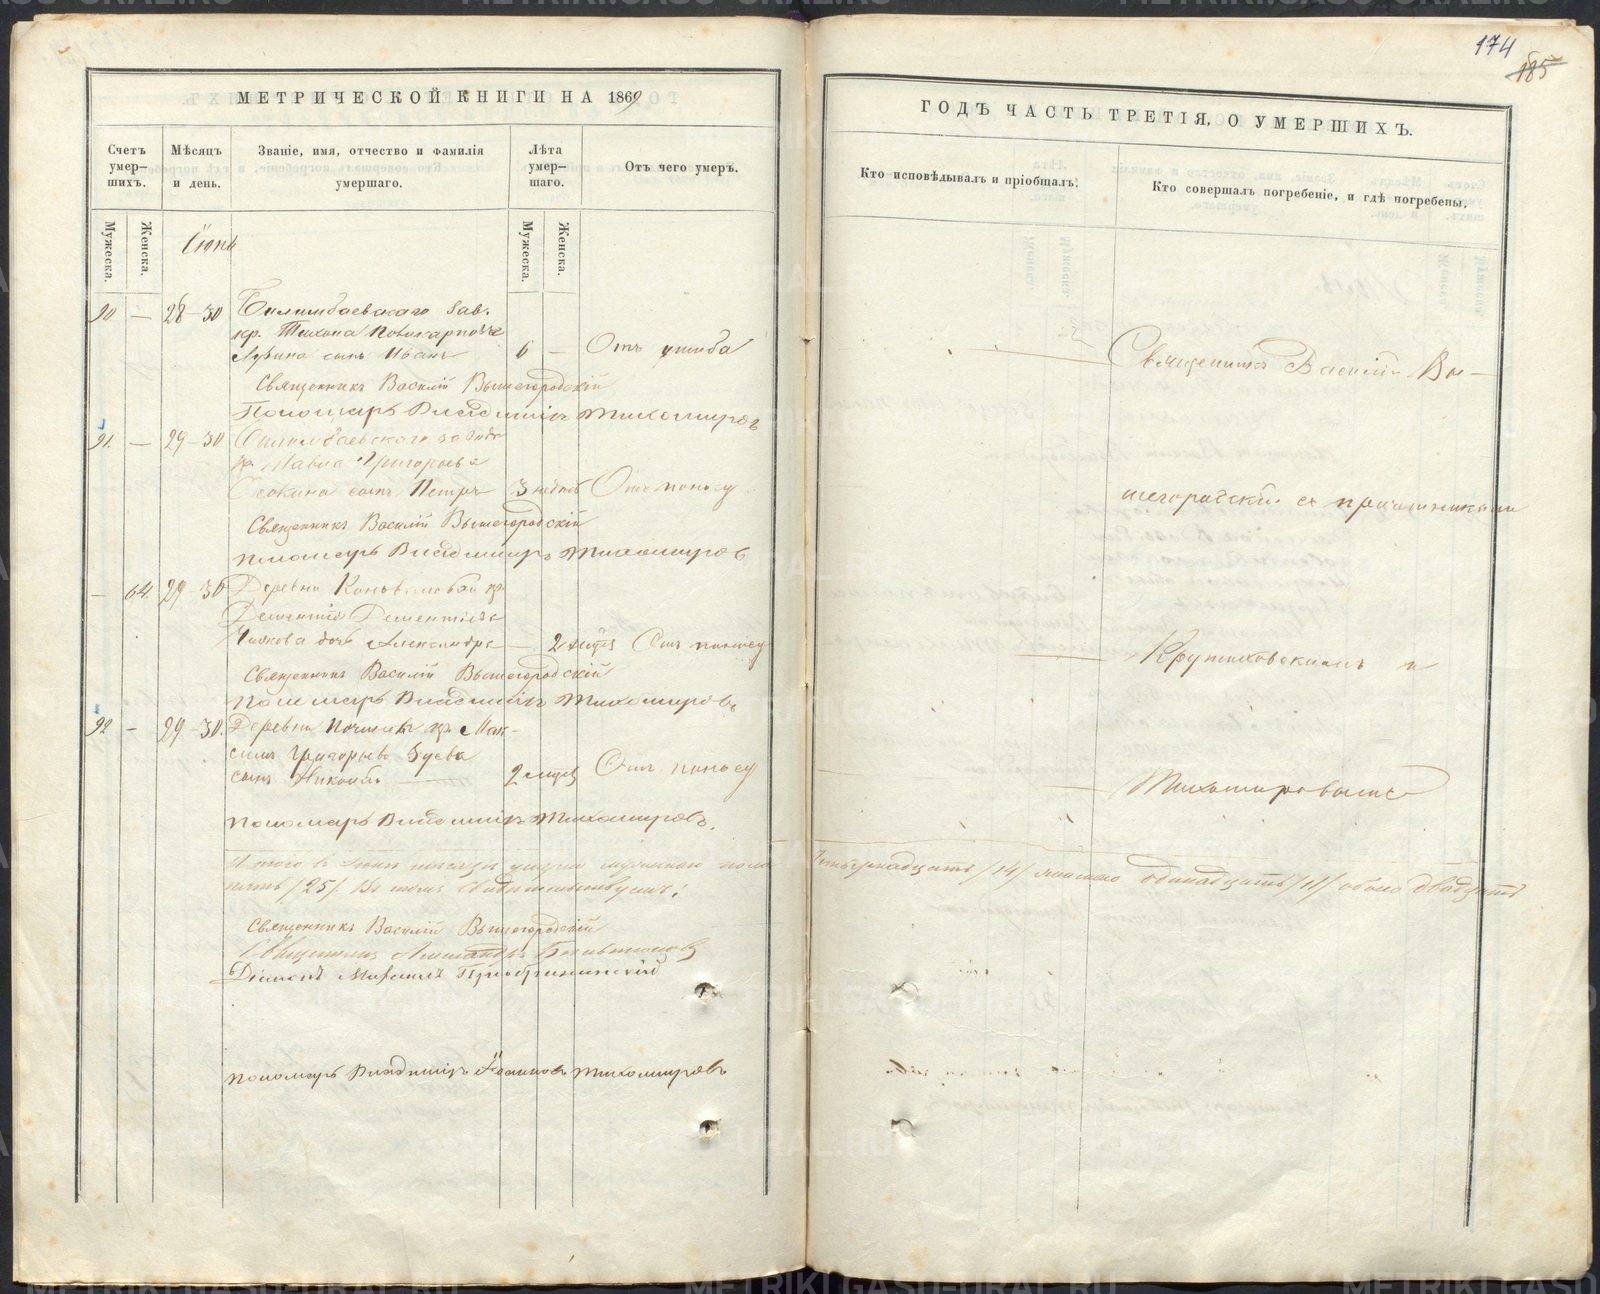 174
185
МЕТРИЧЕСКОЙ КНИГИ НА 1869
ГОДЪ ЧАСТЬ ТРЕТІЯ, О УМЕРШИХЪ.
Счетъ умер-шихъ.
Мѣсяцъ и день.
Званіе, имя, отчество и фамилія умершаго.
Лѣта умер-шаго.
Отъ чего умеръ.
Кто исповѣдывалъ и пріобщалъ.
Кто совершалъ погребеніе, и гдѣ погребены.
Мужеска.
Женска.
Мужеска.
Женска.
Іюнь
90 — 28-30 Билимбаевскаго зав.
кр. Тихона Поликарпова
сынъ Иванъ 6 — Отъ ушиба
Священникъ Василій Вы-
Священникъ Василій Вышегородскій
Пономарь Владиміръ Тихомировъ
91. — 29-30 Билимбаевскаго завода
кр. Павла Григорьева
Осокина сынъ Петръ 3 недѣль Отъ поносу
шегородскій съ причетниками
Священникъ Василій Вышегородскій
пономарь Владиміръ Тихомировъ
— 64. 29-30 Деревни Коноваловой кр.
Дементія Дементьева
дочь Александра — 2 Отъ поносу
Крутиховскимъ и
Священникъ Василій Вышегородскій
пономарь Владиміръ Тихомировъ
92 — 29-30. Деревни Починка кр. Мак-
сима Григорьева
сынъ Никола 2 Отъ поносу
Тихомировымъ
пономарь Владиміръ Тихомировъ.
Итого въ Іюнѣ мѣсяцѣ умерло мужескаго пола
четырнадцать /14/ женскаго одинадцать /11/ обоего двадцать
пять /25/. Въ томъ свидѣтельствуемъ:
Священникъ Василій Вышегородскій
Священникъ Александръ
Діаконъ Михаилъ
пономарь Владиміръ Іоанновъ Тихомировъ
METRIKI.GASO-URAL.RU